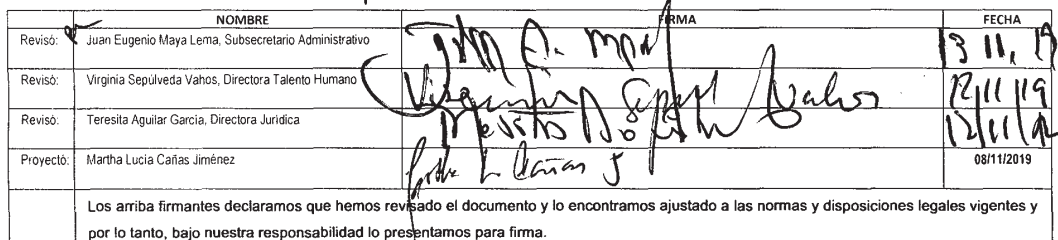 NOMBRE FIRMA FECHA
Revisó: Juan Eugenio Maya Lema, Subsecretario Administrativo 13 11, 19
Revisó: Virginia Sepúlveda Vahos, Directora Talento Humano Virginia Sepul Vahos 12/11/19
Revisó: Teresita Aguilar García, Directora Jurídica 12/11/19
Proyectó: Martha Lucía Cañas Jiménez L Cañas J 08/11/2019
Los arriba firmantes declaramos que hemos revisado el documento y lo encontramos ajustado a las normas y disposiciones legales vigentes y
por lo tanto, bajo nuestra responsabilidad lo presentamos para firma.